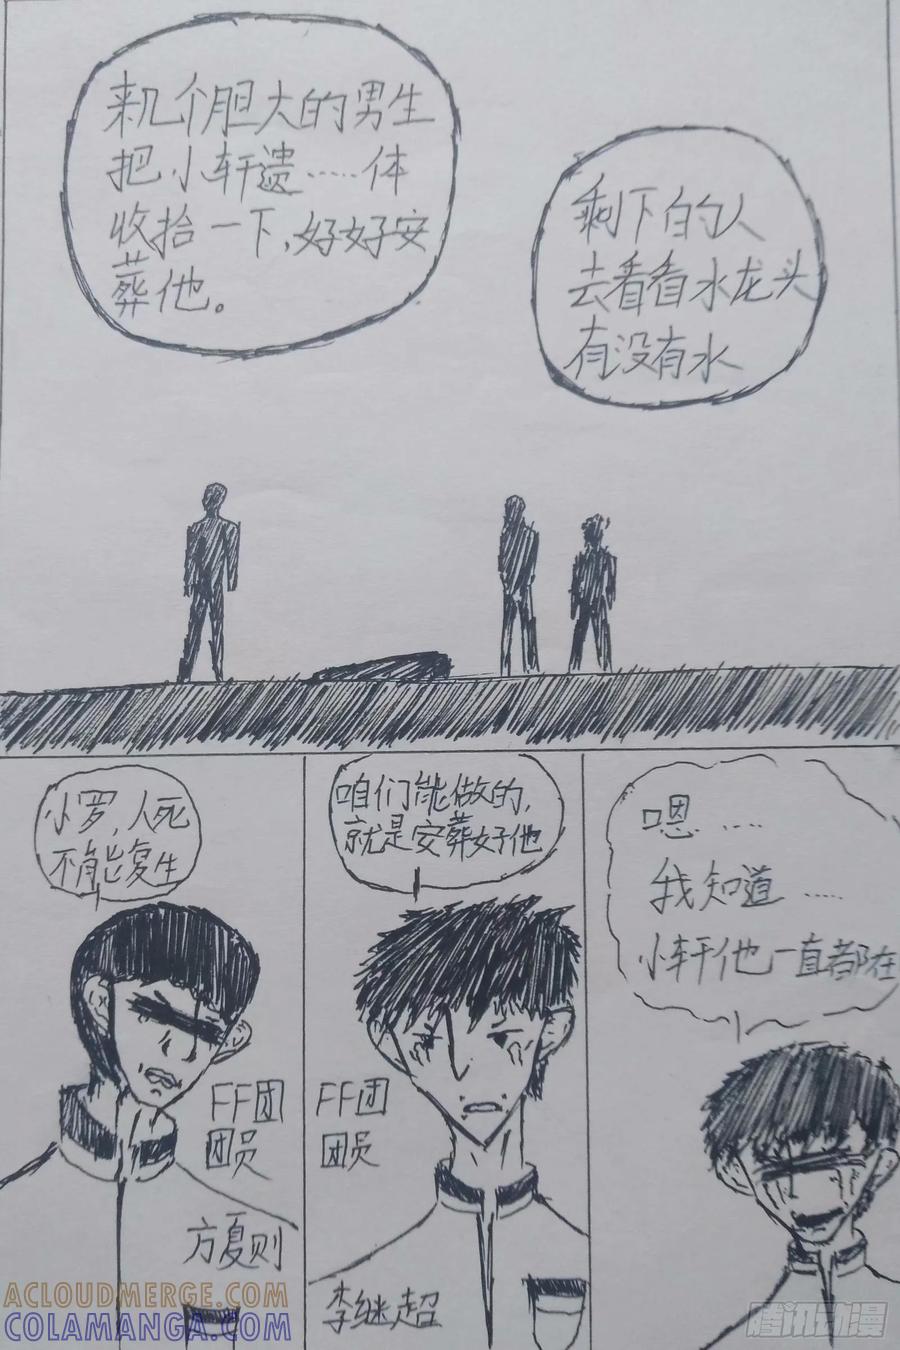 来几个胆大的男生
把小轩遗……体
收拾一下,好好安
葬他。
剩下的人
去看看水龙头
有没有水
小罗,人死
不能复生
咱们能做的,
就是安葬好他
嗯……
我知道……
小轩他一直都在
FF团
团员
方夏则
FF团
团员
李继超
ACLOUDMERGE.COM
COLAMANGA.COM
腾讯动漫